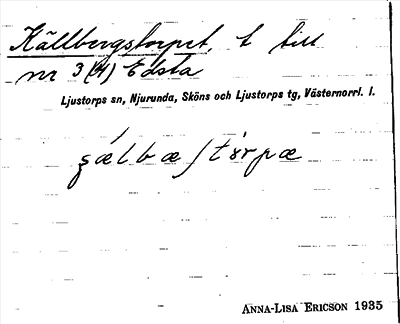 Källbergstorpet, t till
nr 3 (4) Edsta
Ljustorps sn, Njurunda, Sköns och Ljustorps tg, Västernorrl. l.
Anna-Lisa Ericson 1935